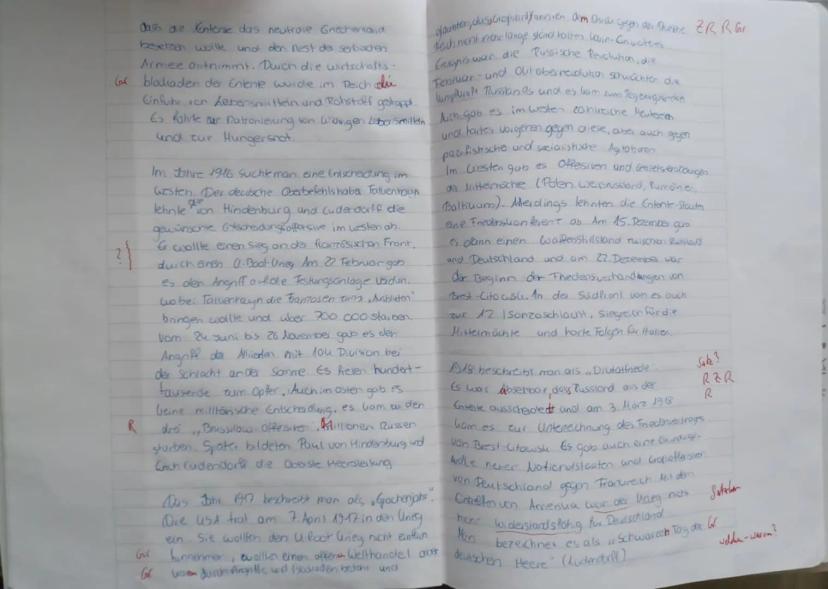 dass die Entente das neutrale Griechenland
besetzen wollte und den Rest der serbischen
Armee aufnimmt. Durch die Wirtschafts-
Gr blockaden der Entente wurde im Reich die
Einfuhr von Lebensmitteln und Rohstoff gestoppt.
Es führte zur Rationierung von wenigen Lebensmitteln
und zur Hungersnot.
Im Jahre 1916 suchte man eine Entscheidung im
Westen. Der deutsche Oberbefehlshaber Falkenhayn
lehnte von Hindenburg und Ludendorff die
gewünschte Entscheidungsoffensive im Westen ab.
Er wollte einen Sieg an der französischen Front,
? durch einen U-Boot-Krieg. Am 22 Februar gab
es den Angriff auf die Festungsanlage Verdun,
wobei Falkenhayn die Franzosen zum "Ausbluten"
bringen wollte und über 700 000 starben.
Vom 24 Juni bis 26 November gab es den
Angriff der Alliierten mit 104 Division bei
der Schlacht an der Somme. Es fielen hundert-
tausende zum Opfer. Auch im Osten gab es
keine militärische Entscheidung, es kam zu den
R drei "Brussilow-Offensive". Millionen Russen
starben. Später bildeten Paul von Hindenburg und
Erich Ludendorff die Oberste Heeresleitung.
Das Jahr 1917 beschreibt man als "Epochenjahr".
Die USA trat am 7. April 1917 in den Krieg
ein. Sie wollten den U-Boot Krieg nicht einfach
Gr hinnehmen, wollten einen offenen Welthandel aber
Gr durch Angriffe und
Am Druck gegen Z R R Gr
doch nicht mehr lange stand halten kann. Ein weiteres
Ereignis war die Russische Revolution, die
Februar- und Oktoberrevolution schwächten die
Kampfkraft Russlands und es kam zum
Auch gab es im Westen
und hartes Vorgehen gegen diese, aber auch gegen
pazifistische und sozialistische Agitatoren.
Im Westen gab es Offensiven und
der Mittelmächte (Polen, Weissrussland, Rumänien,
Baltikum). Allerdings lehnten die Entente-Staaten
eine Friedenskonferenz ab. Am 15. Dezember gab
es dann einen Waffenstillstand zwischen Russland
und Deutschland und am 22. Dezember war
der Beginn der Friedensverhandlungen von
Brest-Litowsk. An der Südfront kam es auch
zur 12. Isonzoschlacht, siegreich für die
Mittelmächte und harte Folgen für Italien.
1918 beschreibt man als "Diktatfriede". Satz?
Es war absehbar, dass Russland aus der R Z R
Entente ausscheidet und am 3. März 1918 R
kam es zur Unterzeichnung des Friedensvertrags
von Brest-Litowsk. Es gab auch eine
neuer Nationalstaaten und
von Deutschland gegen Frankreich. Mit dem
von war der Krieg nicht Satzbau
mehr widerstandsfähig für Deutschland.
Man bezeichnet es als "Schwarzen Tag der Gr
deutschen Heere" (Ludendorff) warum?